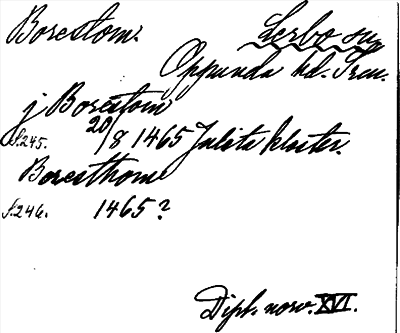 Borestom. Lerbo sn
Oppunda hd. Srm.
j Borestom
S. 245. 20/8 1465 Julita kloster.
Boresthome
S. 246. 1465?
Dipl. norv. XVI.